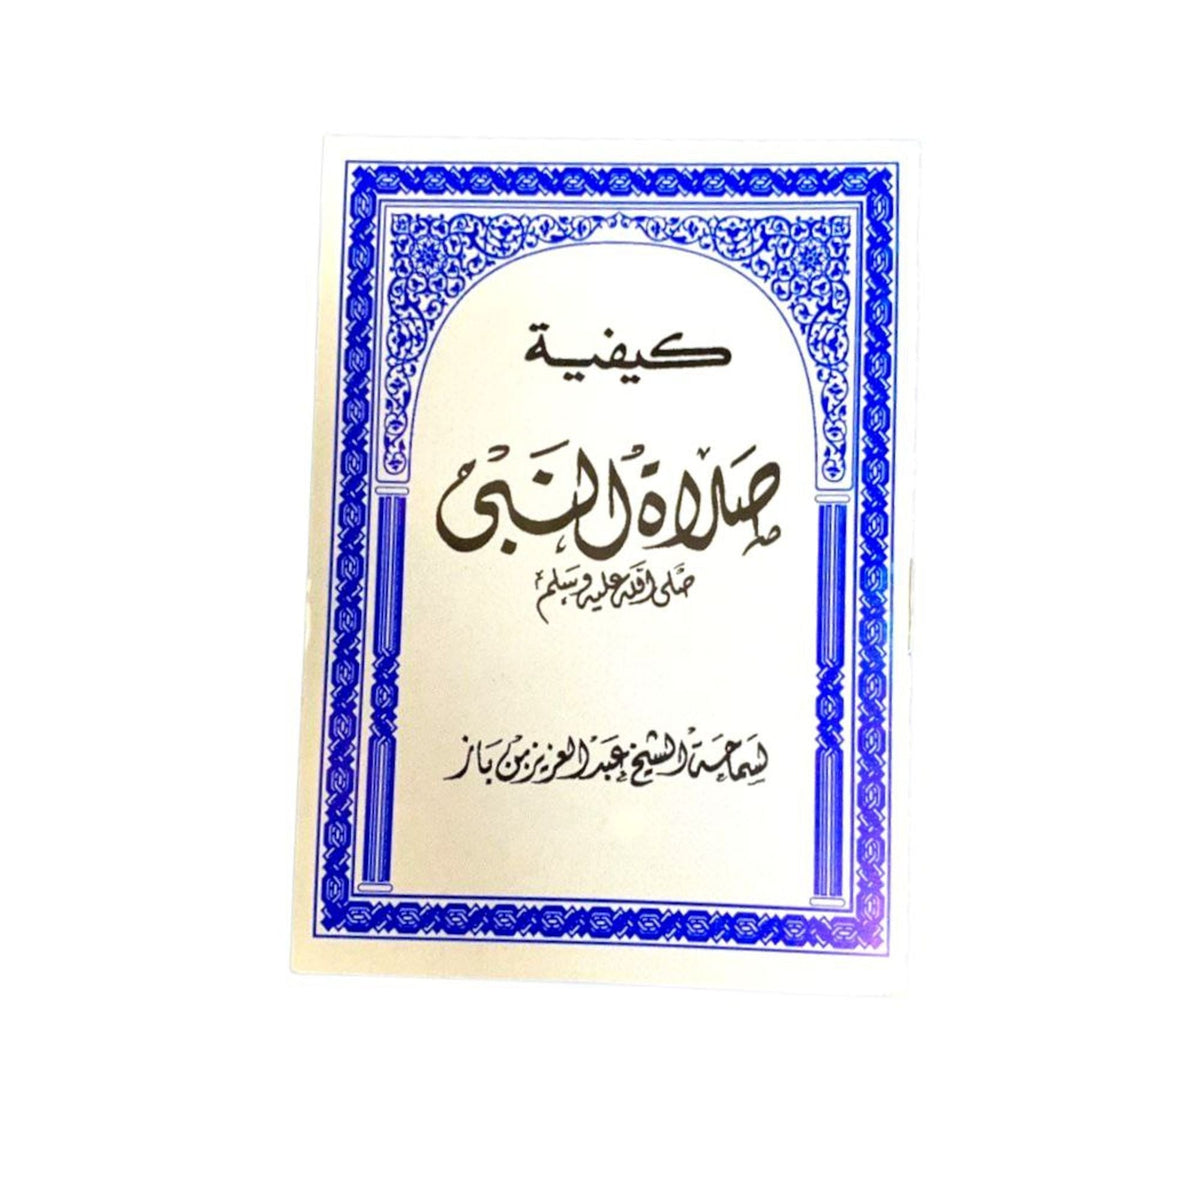 كيفية
صَلاةُ النَبي
صَلى الله عليه وسَلم
لسَماحَة الشيخ عَبد العزيز بن بَاز